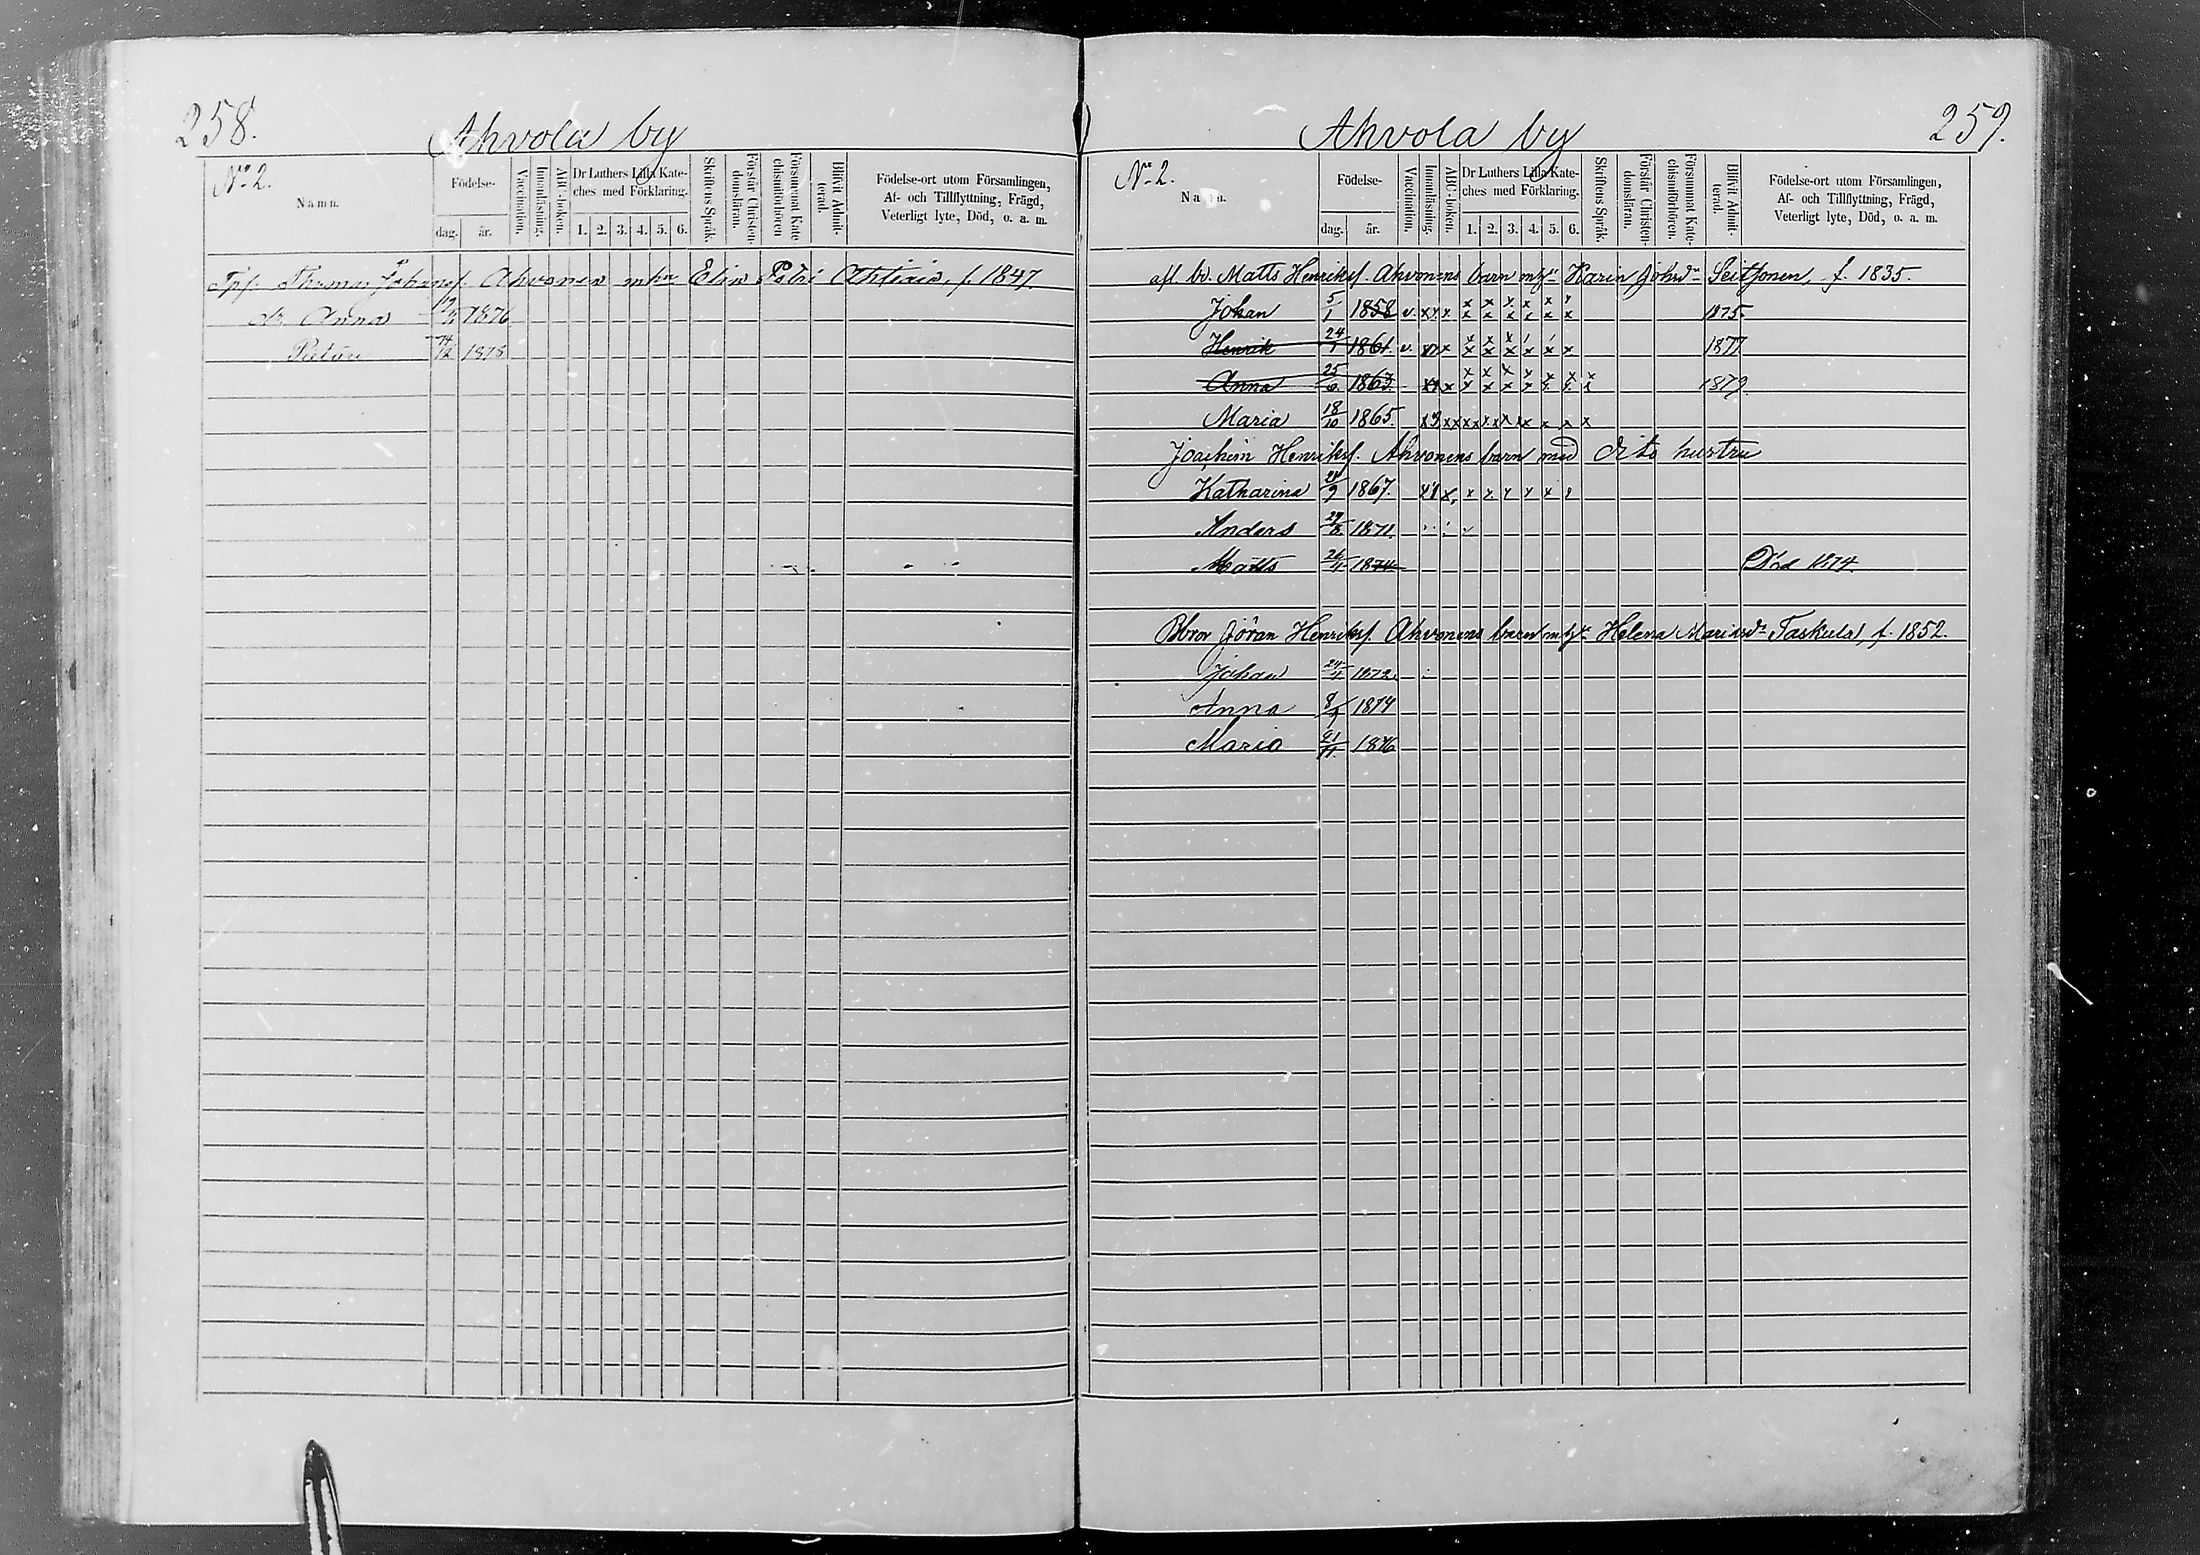 258.
Ahvola by
No 2.
Namn.
Födelse-
dag.
år.
Vaccination.
Innanläsning.
ABC-boken.
Dr Luthers Lilla Kate-
ches med Förklaring.
1. 2. 3. 4. 5. 6.
Skriftens Språk.
Förstår Christen-
domsläran.
Försummat Kate
chismiförhören
Blivit Admit-
terad.
Födelse-ort utom Församlingen,
Af- och Tillflyttning, Frägd,
Veterligt lyte, Död, o. a. m.
Thomas Johansf. Ahvonen Elin Petri f. 1847.
dr. Anna 1876
14/12 1878
259.
Ahvola by
No 2.
Namn.
Födelse-
dag.
år.
Vaccination.
Innanläsning.
ABC-boken.
Dr Luthers Lilla Kate-
ches med Förklaring.
1. 2. 3. 4. 5. 6.
Skriftens Språk.
Förstår Christen-
domsläran.
Försummat Kate-
chismiförhören.
Blivit Admit-
terad.
Födelse-ort utom Församlingen,
Af- och Tillflyttning, Frägd,
Veterligt lyte, Död, o. a. m.
afl. br. Matts Henriksf. Ahvonens barn Karin Johsdr Seitsonen, f. 1835.
Johan 5/1 1858 v. x x x x x x x x 1875.
Henrik 24/1 1861. v. x x x x x x x 1877
Anna 25/6 1863. x x x x x x x 1879
Maria 18/10 1865. x x x x x x x x
Joachim Henriksf. Ahvonens barn med dito hustru
Katharina 1867. x x x x x x
Anders 29/8 1871
Matts 26/11 1874 Död 1874.
Bbror Jöran Henriksf. Ahvonens barn Helena Taskula, f. 1852.
Johan 1872
Anna 8/9 1874
Maria 21/11. 1876